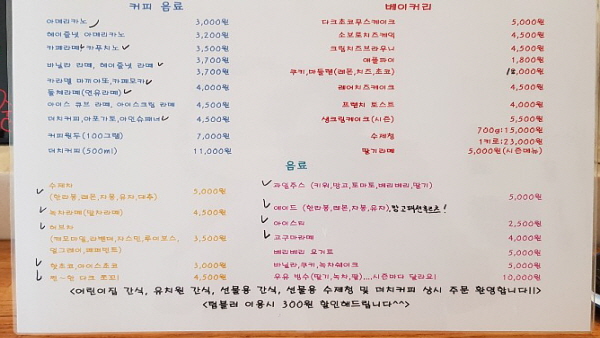 커피 음료
아메리카노 3,000원
헤이즐넛 아메리카노 3,200원
카페라떼 카푸치노 3,500원
3,700원
바닐라 라떼, 헤이즐넛 라떼 3,700원
카라멜 마끼아또, 카페모카
돌체라떼(연유라떼) 4,000원
아이스 큐브 라떼, 아이스크림 라떼 4,500원
더치커피, 아포가토, 아인슈페너 4,500원
커피원두(100그램) 7,000원
더치커피(500ml) 11,000원
베이커리
다크초코무스케이크 5,000원
소보로치즈케익 4,500원
크림치즈브라우니 4,500원
애플파이 1,800원
쿠키,마들렌(레몬,치즈,초코) 2,000원
레이어치즈케익 4,500원
프렌치 토스트 4,000원
생크림케이크(시즌) 5,500원
수제청 700g:15,000원
1키로:23,000원
딸기라떼 5,000원(시즌메뉴)
음료
수제차 5,000원
(한라봉,레몬,자몽,유자,대추)
녹차라떼(말차라떼) 4,500원
허브차
(캐모마일,라벤더,자스민,루이보스, 3,500원
얼그레이,페퍼민트)
핫초코,아이스초코 3,000원
벤~원 다크 로꼬! 4,500원
과일주스 (키위,망고,토마토,베리베리,딸기)
5,000원
에이드 (한라봉,레몬,자몽,유자),망고패션후르츠!
아이스티 2,500원
고구마라떼 4,000원
베리베리 요거트 5,000원
바닐라,쿠키,녹차쉐이크 5,000원
우유 빙수(딸기,녹차,팥)....시즌마다 달라요! 10,000원
<어린이집 간식, 유치원 간식, 선물용 간식, 선물용 수제청 및 더치커피 상시 주문 환영합니다!!>
<텀블러 이용시 300원 할인해드립니다^^>